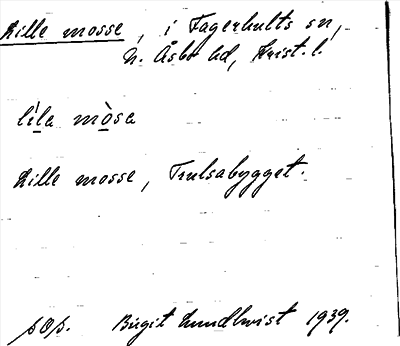 Lille mosse, i Fagerhults sn,
N. Åsbo hd, Krist. l.
lí̲la mò̲sa
Lille mosse, Trulsabygget.
pop. Birgit Lundkvist 1939.